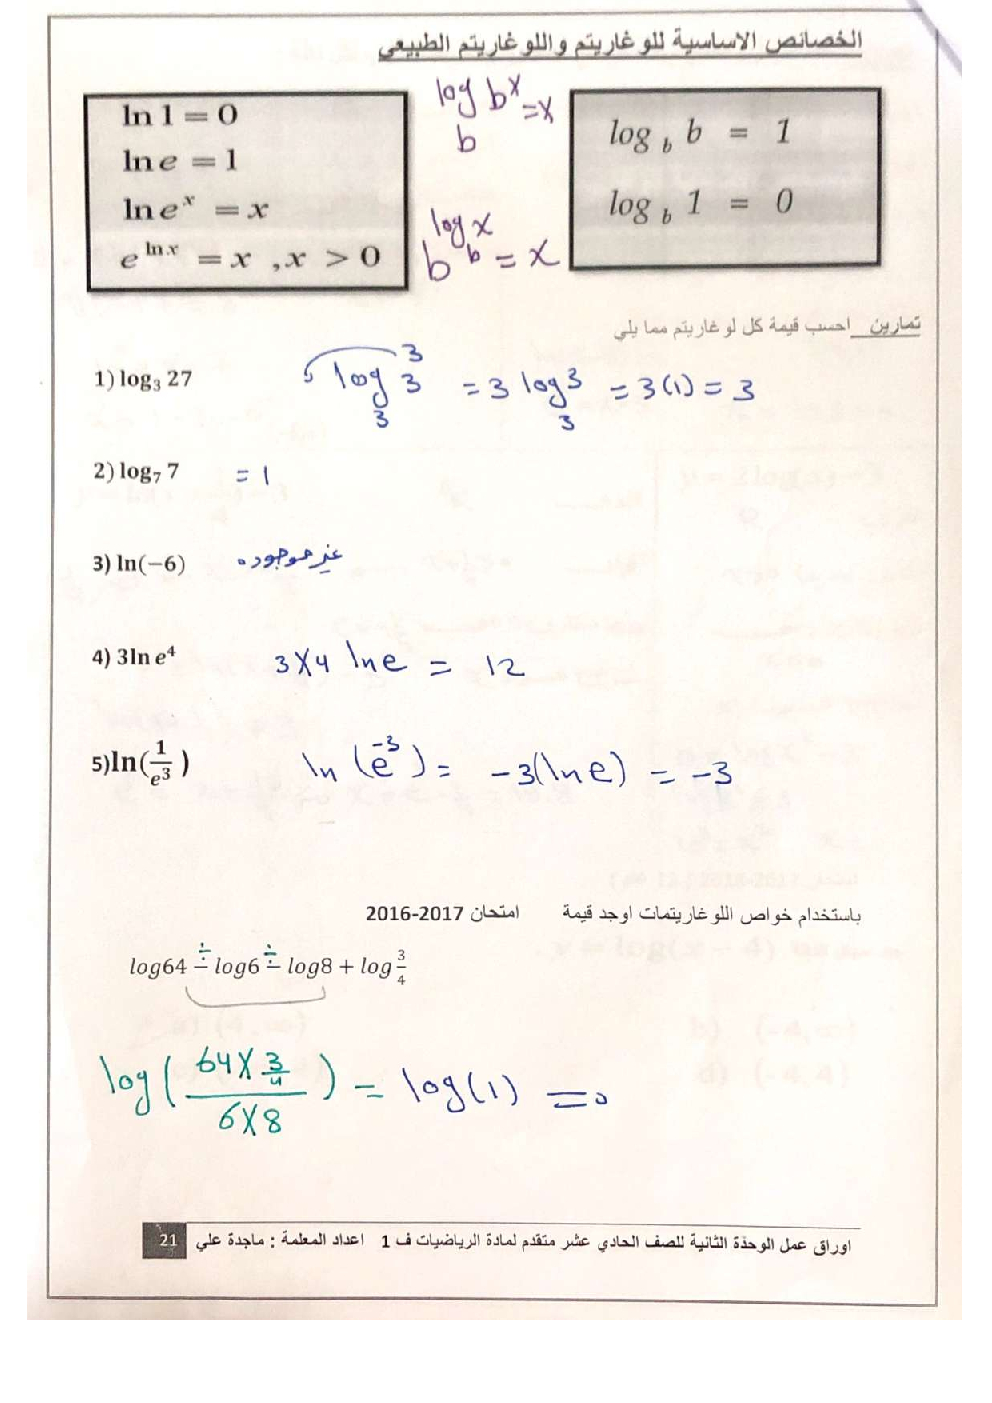 الخصائص الاساسية للوغاريتم واللوغاريتم الطبيعي
ln 1 = 0
ln e = 1
ln e^x = x
e^{ln x} = x , x > 0
log_b b^x = x
b^{log_b x} = x
log_b b = 1
log_b 1 = 0
تمارين احسب قيمة كل لوغاريتم مما يلي
1) log₃ 27 log_3 3^3 = 3 log_3 3 = 3(1) = 3
2) log₇ 7 = 1
3) ln(−6) غير موجوده
4) 3ln e⁴ 3×4 ln e = 12
5)ln(1/e³) ln (e^{-3}) = -3(ln e) = -3
باستخدام خواص اللوغاريتمات اوجد قيمة امتحان 2017-2016
log64 ÷ − log6 ÷ − log8 + log 3/4
log( (64×3/4)/(6×8) ) = log(1) = 0
اوراق عمل الوحدة الثانية للصف الحادي عشر متقدم لمادة الرياضيات ف 1 اعداد المعلمة : ماجدة علي 21